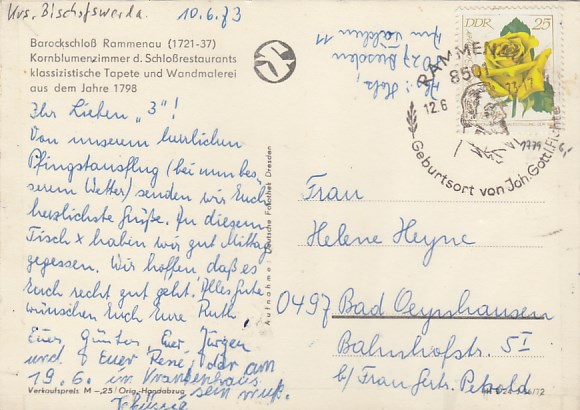 Krs. Bischofswerda. 10.6.73
Barockschloß Rammenau (1721-37)
Kornblumenzimmer d. Schloßrestaurants
klassizistische Tapete und Wandmalerei
aus dem Jahre 1798
Ihr Lieben "3"!
Von unserem herrlichen
Pfingstausflug (bei nun bes-
serem Wetter) senden wir Euch
herzlichste Grüße. An diesem
Tisch x haben wir gut Mittag
gegessen. Wir hoffen, daß es
Euch recht gut geht. Alles Gute
wünschen Euch Eure Ruth
Euer Günter, Euer Jürgen
und Euer René, der am
19.6. ins Krankenhaus
sein muß.
Verkaufspreis M -,25 Orig.-Handabzug
Aufnahme: Deutsche Fotothek Dresden
8027 Dresden
11
DDR 25
RAMMENAU
8501
12.6. 73-17
Geburtsort von Joh. Gottl. Fichte
Frau
Helene Heyne
0497 Bad Oeynhausen
Bahnhofstr. 51
b/ Frau Gertr. Petzold